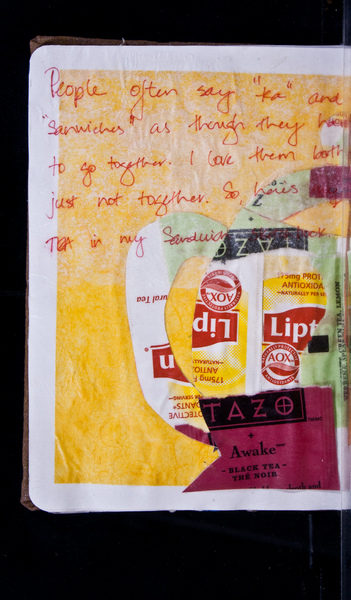 People often say "tea" and
"Sandwiches" as though they have
to go together. I love them both
just not together. So, here's my
TEA in my Sandwich book
TAZO
175mg PROT
ANTIOXIDA
NATURALLY PER SE
AOX
AOX
Lip
Lipt
n
ural Tea
175mg F
ANTIOX
NATURALLY
PROTECTIVE
DANTS*
PER SERVING
GREEN TEA, LEMON
TAZO
Awake
BLACK TEA
THÉ NOIR